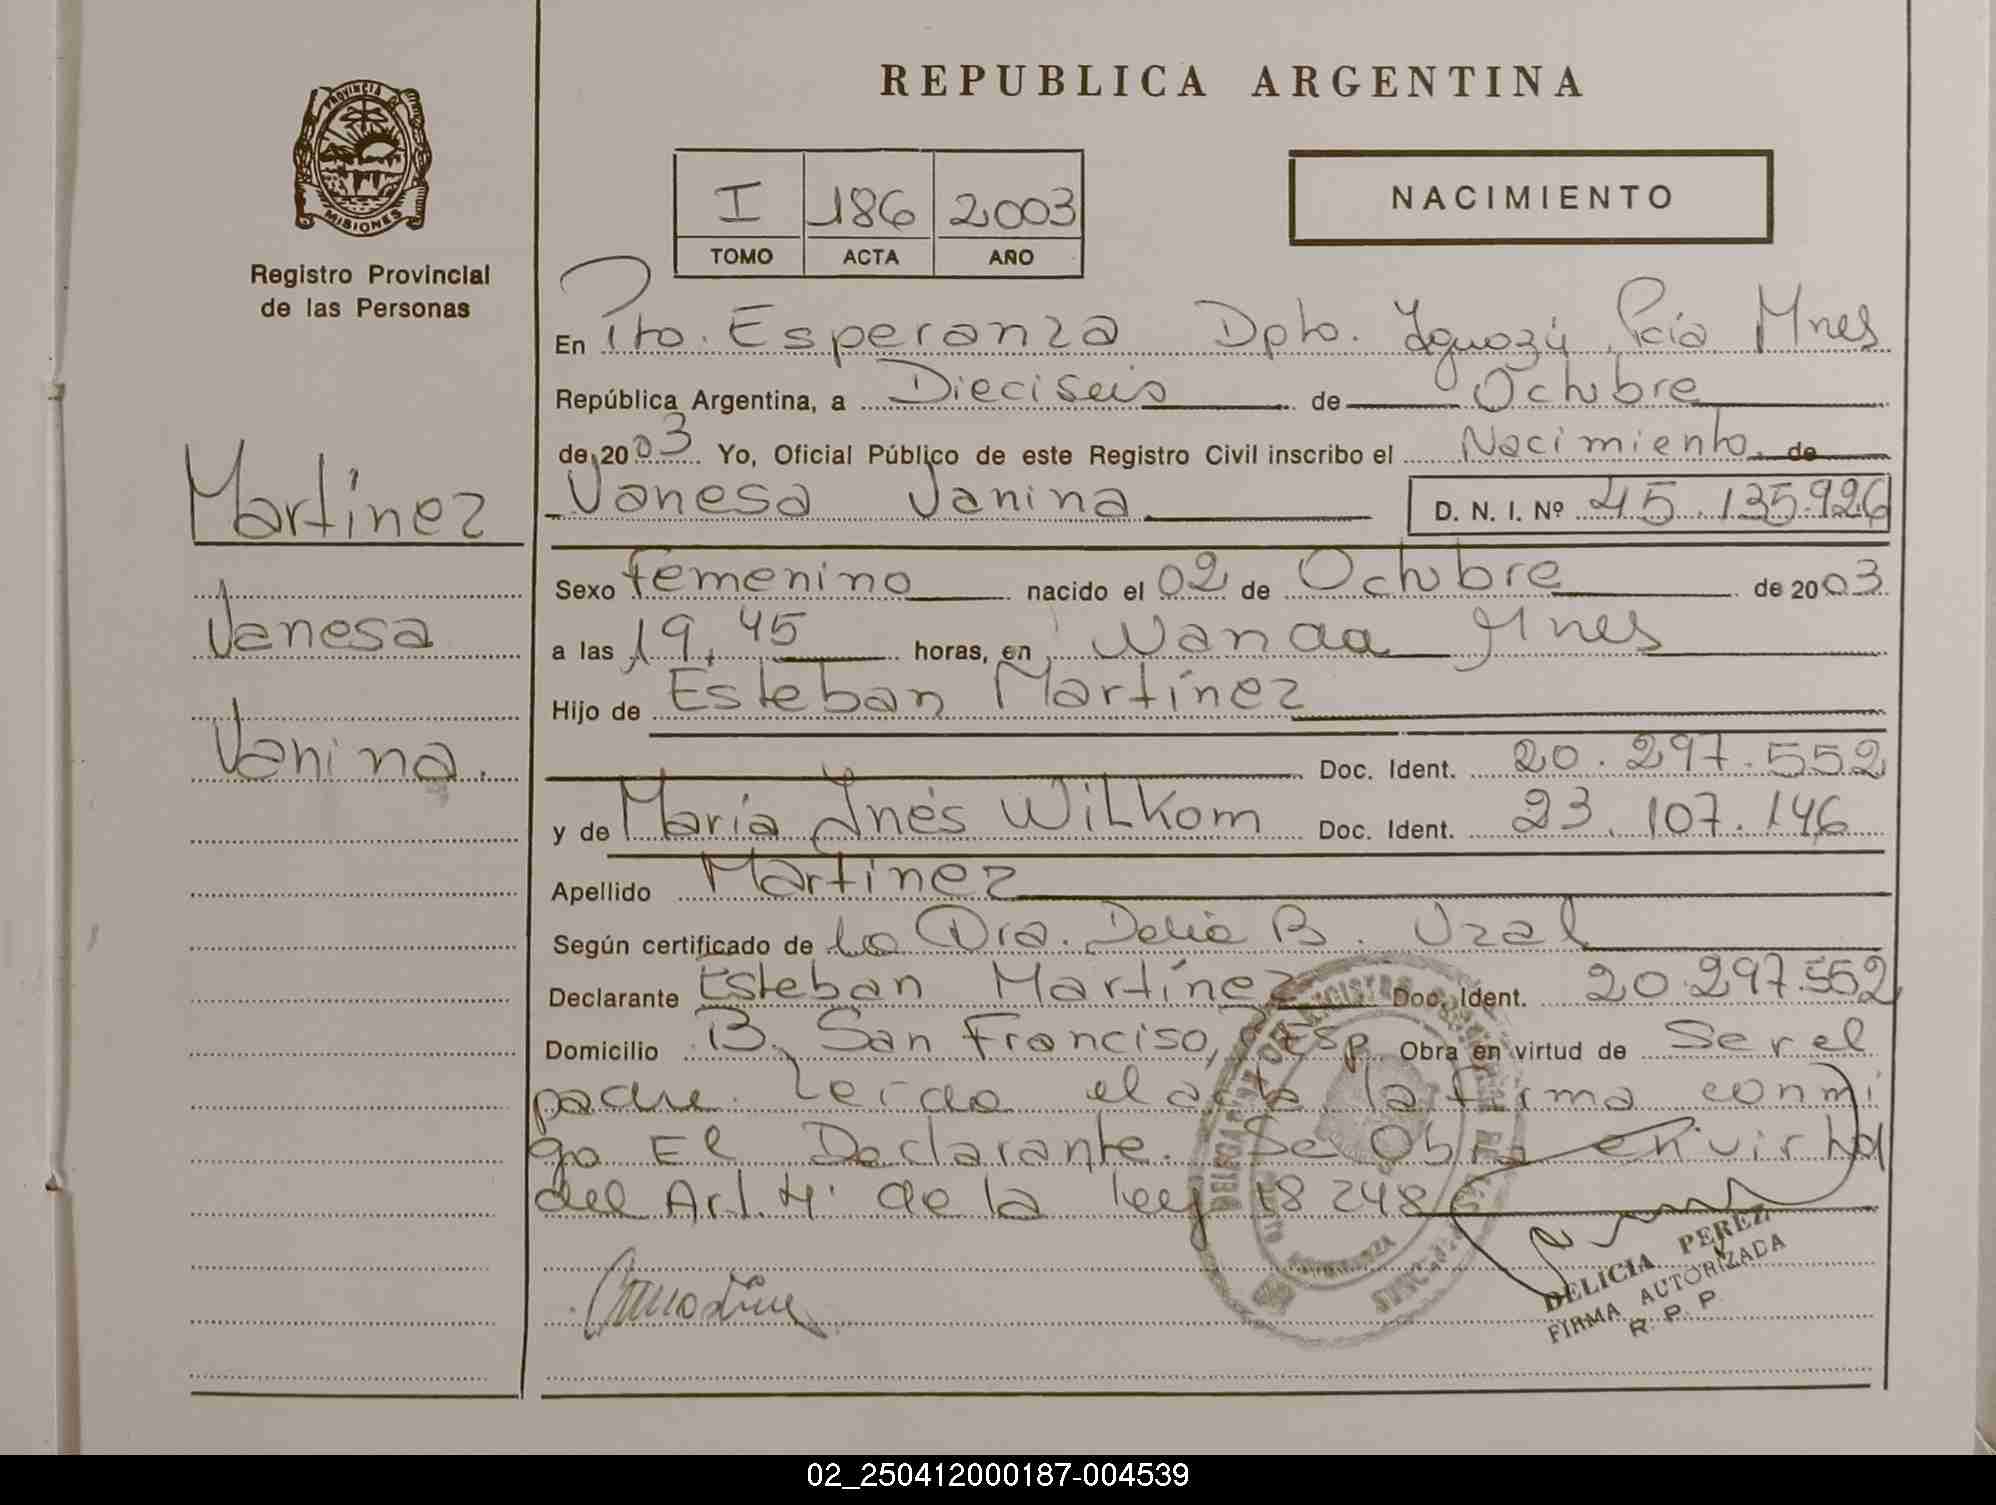 REPUBLICA ARGENTINA
PROVINCIA DE
MISIONES
Registro Provincial
de las Personas
I 186 2003
TOMO ACTA AÑO
NACIMIENTO
En Pto. Esperanza Dpto. Iguazú Pcia Mnes
República Argentina, a Dieciseis de Octubre
de 2003 Yo, Oficial Público de este Registro Civil inscribo el Nacimiento de
Vanesa Vanina D. N. I. Nº 45.135.926
Martínez
Vanesa
Vanina.
Sexo femenino nacido el 02 de Octubre de 2003
a las 19,45 horas, en Wanda Mnes
Hijo de Esteban Martínez
Doc. Ident. 20.297.552
y de María Inés WilKom Doc. Ident. 23.107.146
Apellido Martínez
Según certificado de la Dra. Delia B. Uzal
Declarante Esteban Martínez Doc. Ident. 20.297.552
Domicilio B. San Franciso, P. Esp. Obra en virtud de Ser el
padre. Leída el acta la firma conmi
go El Declarante. Se Obra en virtud
del Art. 4° de la ley 18248
DELICIA PEREZ
FIRMA AUTORIZADA
R. P. P.
02_250412000187-004539